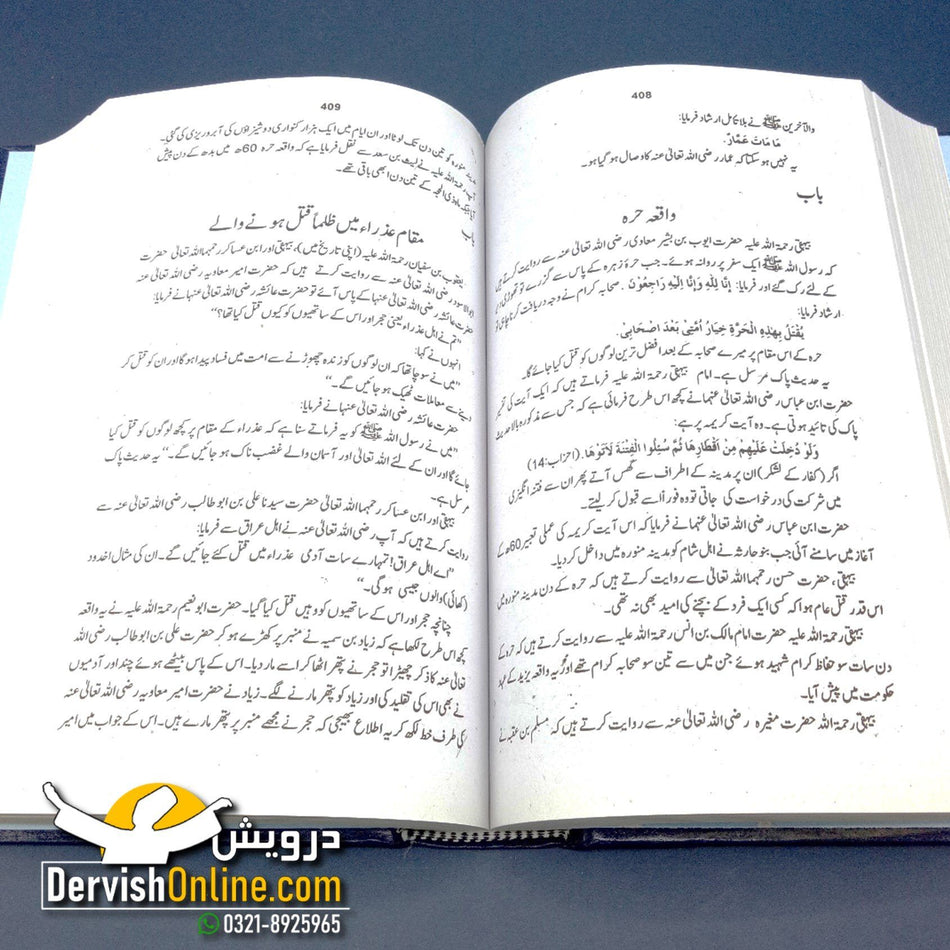 408
والآخرین ﷺ نے بلا تامل ارشاد فرمایا:
مَا مَاتَ عَمَّارٌ.
یہ نہیں ہو سکتا کہ عمار رضی اللہ تعالیٰ عنہ کا وصال ہو گیا ہو۔
باب
واقعہ حرہ
بیہقی رحمۃ اللہ علیہ حضرت ایوب بن بشیر معادی رضی اللہ تعالیٰ عنہ سے روایت کرتے ہیں
کہ رسول اللہ ﷺ ایک سفر پر روانہ ہوئے۔ جب حرۂ زہرہ کے پاس سے گزرے تو تھوڑی دیر
کے لئے رک گئے اور فرمایا: إِنَّا لِلّٰهِ وَإِنَّا إِلَيْهِ رَاجِعُوْنَ۔ صحابہ کرام نے وجہ دریافت کرنا چاہی تو
ارشاد فرمایا:
يُقْتَلُ بِهٰذِهِ الْحَرَّةِ خِيَارُ أُمَّتِيْ بَعْدَ اَصْحَابِيْ.
حرہ کے اس مقام پر میرے صحابہ کے بعد افضل ترین لوگوں کو قتل کیا جائے گا۔
یہ حدیث پاک مرسل ہے۔ امام بیہقی رحمۃ اللہ علیہ فرماتے ہیں کہ ایک آیت کی تفسیر
حضرت ابن عباس رضی اللہ تعالیٰ عنہما نے کچھ اس طرح فرمائی ہے کہ جس سے مذکورہ بالا حدیث
پاک کی تائید ہوتی ہے۔ وہ آیت کریمہ یہ ہے:
وَلَوْ دُخِلَتْ عَلَيْهِمْ مِنْ اَقْطَارِهَا ثُمَّ سُئِلُوا الْفِتْنَةَ لَاٰتَوْهَا. (احزاب:14)
اگر (کفار کے لشکر) ان پر مدینہ کے اطراف سے گھس آتے پھر ان سے فتنہ انگیزی
میں شرکت کی درخواست کی جاتی تو وہ فوراً اسے قبول کر لیتے۔
حضرت ابن عباس رضی اللہ تعالیٰ عنہما نے فرمایا کہ اس آیت کریمہ کی عملی تعبیر 60ھ کے
آغاز میں سامنے آئی جب بنو حارثہ نے اہل شام کو مدینہ منورہ میں داخل کر دیا۔
بیہقی، حضرت حسن رحمہما اللہ تعالیٰ سے روایت کرتے ہیں کہ حرہ کے دن مدینہ منورہ میں
اس قدر قتل عام ہوا کہ کسی ایک فرد کے بچنے کی امید بھی نہ تھی۔
بیہقی رحمۃ اللہ علیہ حضرت امام مالک بن انس رحمۃ اللہ علیہ سے روایت کرتے ہیں کہ حرہ کے
دن سات سو حفاظ کرام شہید ہوئے جن میں سے تین سو صحابہ کرام تھے اور یہ واقعہ یزید کے عہد
حکومت میں پیش آیا۔
بیہقی رحمۃ اللہ حضرت مغیرہ رضی اللہ تعالیٰ عنہ سے روایت کرتے ہیں کہ مسلم بن عقبہ نے
409
مدینہ منورہ کو تین دن تک لوٹا اور ان ایام میں ایک ہزار کنواری دوشیزاؤں کی آبرو ریزی کی گئی۔
آپ رحمۃ اللہ علیہ نے لیث بن سعد سے نقل فرمایا ہے کہ واقعہ حرہ 60ھ میں بدھ کے دن پیش
آیا جبکہ ماہ ذی الحجہ کے تین دن ابھی باقی تھے۔
باب
مقام عذراء میں ظلماً قتل ہونے والے
یعقوب بن سفیان رحمۃ اللہ علیہ (اپنی تاریخ میں)، بیہقی اور ابن عساکر رحمہما اللہ تعالیٰ حضرت
ابوالاسود رضی اللہ تعالیٰ عنہ سے روایت کرتے ہیں کہ حضرت امیر معاویہ رضی اللہ تعالیٰ عنہ
حضرت عائشہ رضی اللہ تعالیٰ عنہا کے پاس آئے تو حضرت عائشہ رضی اللہ تعالیٰ عنہا نے فرمایا:
”تم نے اہل عذراء یعنی حجر اور اس کے ساتھیوں کو کیوں قتل کیا تھا؟“
انہوں نے کہا:
”میں نے سوچا تھا کہ ان لوگوں کو زندہ چھوڑنے سے امت میں فساد پیدا ہو گا اور ان کو قتل کر
دینے سے معاملات ٹھیک ہو جائیں گے۔“
حضرت عائشہ رضی اللہ تعالیٰ عنہا نے فرمایا:
”میں نے رسول اللہ ﷺ کو یہ فرماتے سنا ہے کہ عذراء کے مقام پر کچھ لوگوں کو قتل کیا
جائے گا اور ان کے لئے اللہ تعالیٰ اور آسمان والے غضب ناک ہو جائیں گے۔“ یہ حدیث پاک
مرسل ہے۔
بیہقی اور ابن عساکر رحمہما اللہ تعالیٰ حضرت سیدنا علی بن ابو طالب رضی اللہ تعالیٰ عنہ سے
روایت کرتے ہیں کہ آپ رضی اللہ تعالیٰ عنہ نے اہل عراق سے فرمایا:
”اے اہل عراق! تمہارے سات آدمی عذراء میں قتل کئے جائیں گے۔ ان کی مثال اخدود
(کھائی) والوں جیسی ہو گی۔“
چنانچہ حجر اور اس کے ساتھیوں کو وہیں قتل کیا گیا۔ حضرت ابو نعیم رحمۃ اللہ علیہ نے یہ واقعہ
کچھ اس طرح لکھا ہے کہ زیاد بن سمیہ نے منبر پر کھڑے ہو کر حضرت علی بن ابو طالب رضی اللہ
تعالیٰ عنہ کا ذکر چھیڑا تو حجر نے پتھر اٹھا کر اسے مار دیا۔ اس کے پاس بیٹھے ہوئے چند اور آدمیوں
نے بھی اس کی تقلید کی اور زیاد کو پتھر مارنے لگے۔ زیاد نے حضرت امیر معاویہ رضی اللہ تعالیٰ عنہ
کی طرف خط لکھ کر یہ اطلاع بھیجی کہ حجر نے مجھے منبر پر پتھر مارے ہیں۔ اس کے جواب میں امیر
درویش
DervishOnline.com
0321-8925965